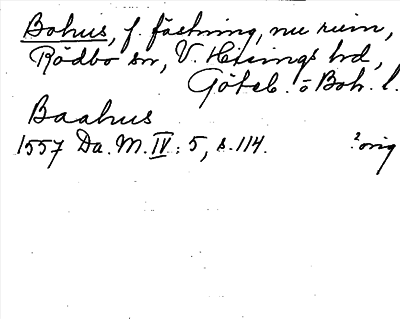 Bohus, f. fästning, nu ruin,
Rödbo sn, V. Hisings hd,
Göteb. o Boh. l.
Baahus
1557 Da. M. IV: 5, s. 114. ? orig